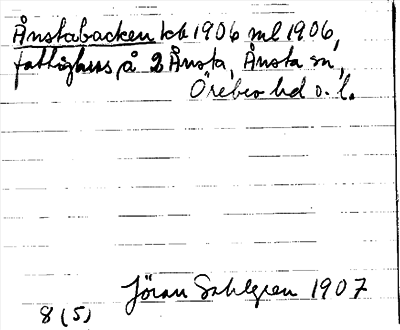 Ånstabacken kb 1906 ml 1906,
fattighus på 2 Ånsta, Ånsta sn,
Örebro hd o. l.
Jöran Sahlgren 1907
8 (5)